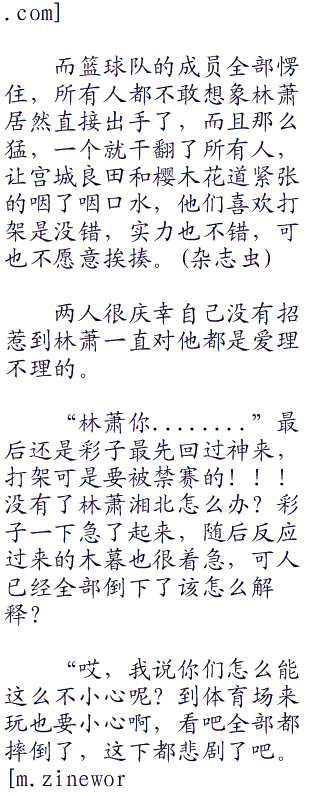 .com]
而篮球队的成员全部愣
住，所有人都不敢想象林萧
居然直接出手了，而且那么
猛，一个就干翻了所有人，
让宫城良田和樱木花道紧张
的咽了咽口水，他们喜欢打
架是没错，实力也不错，可
也不愿意挨揍。(杂志虫)
两人很庆幸自己没有招
惹到林萧一直对他都是爱理
不理的。
“林萧你........”最
后还是彩子最先回过神来，
打架可是要被禁赛的！！！
没有了林萧湘北怎么办？彩
子一下急了起来，随后反应
过来的木暮也很着急，可人
已经全部倒下了该怎么解
释？
“哎，我说你们怎么能
这么不小心呢？到体育场来
玩也要小心啊，看吧全部都
摔倒了，这下都悲剧了吧。
[m.zinewor